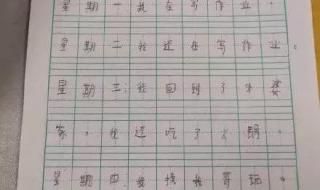 星期一我在写作业。
星期二我还在写作业。
星期三我回到了外婆
家。我还吃了火锅。
星期四我找我哥玩。